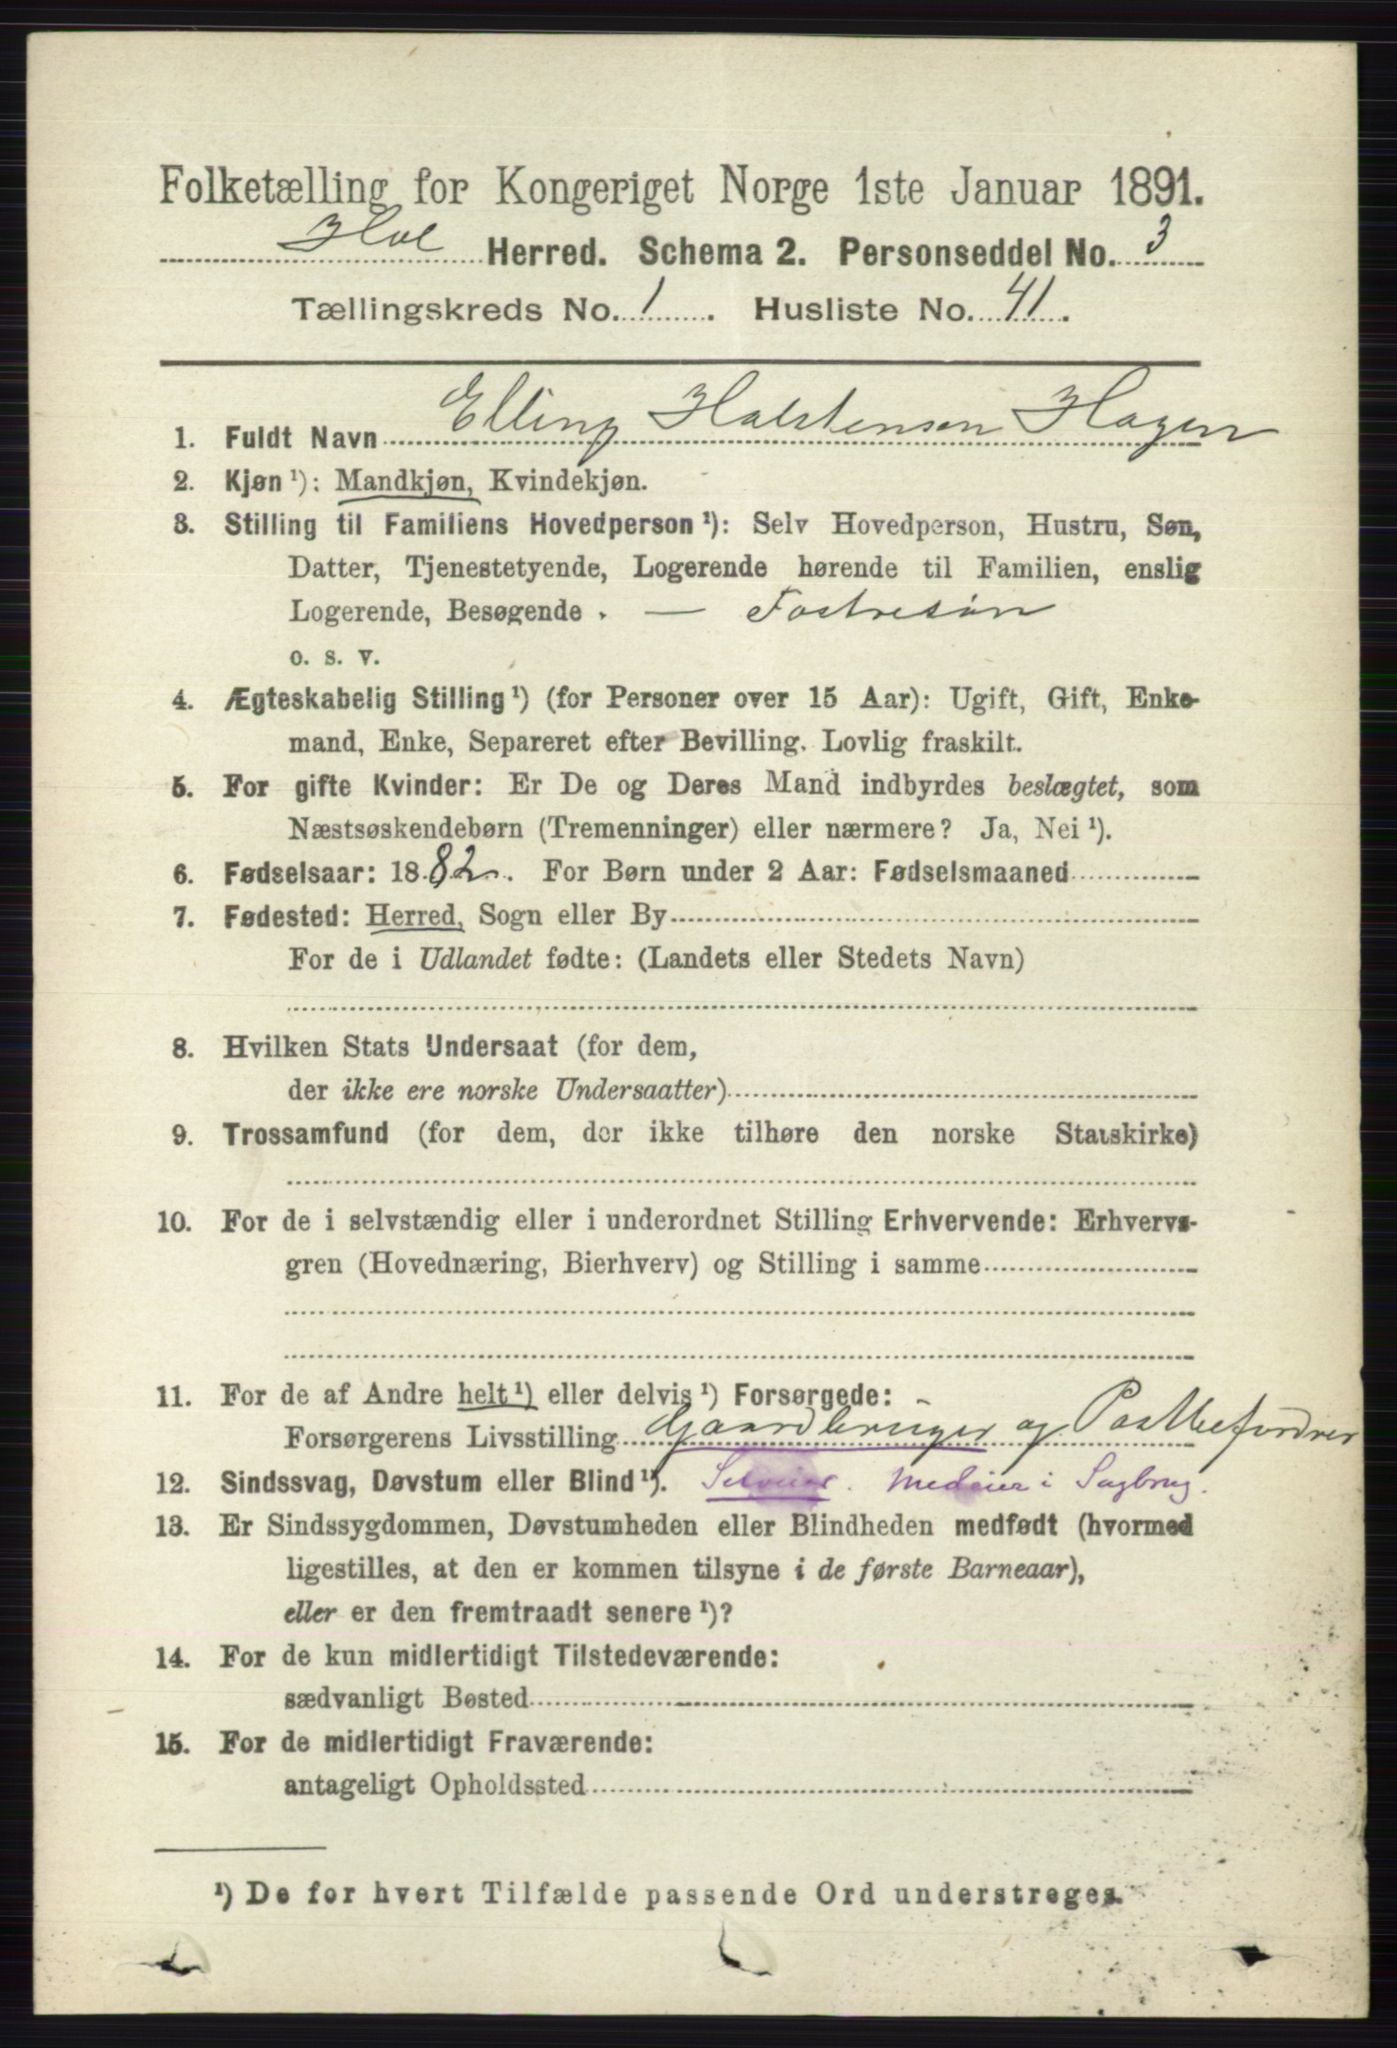 Folketælling for Kongeriget Norge 1ste Januar 1891.
Hol Herred. Schema 2. Personseddel No. 3
Tællingskreds No. 1. Husliste No. 41.
1. Fuldt Navn Elling Halstensen Hagen
2. Kjøn ¹): Mandkjøn, Kvindekjøn.
3. Stilling til Familiens Hovedperson ¹): Selv Hovedperson, Hustru, Søn,
Datter, Tjenestetyende, Logerende hørende til Familien, enslig
Logerende, Besøgende . — Fostresøn
o. s. v.
4. Ægteskabelig Stilling ¹) (for Personer over 15 Aar): Ugift, Gift, Enke-
mand, Enke, Separeret efter Bevilling. Lovlig fraskilt.
5. For gifte Kvinder: Er De og Deres Mand indbyrdes beslægtet, som
Næstsøskendebørn (Tremenninger) eller nærmere? Ja, Nei ¹).
6. Fødselsaar: 1882. For Børn under 2 Aar: Fødselsmaaned
7. Fødested: Herred, Sogn eller By
For de i Udlandet fødte: (Landets eller Stedets Navn)
8. Hvilken Stats Undersaat (for dem,
der ikke ere norske Undersaatter)
9. Trossamfund (for dem, der ikke tilhøre den norske Statskirke)
10. For de i selvstændig eller i underordnet Stilling Erhvervende: Erhvervs-
gren (Hovednæring, Bierhverv) og Stilling i samme
11. For de af Andre helt ¹) eller delvis ¹) Forsørgede:
Forsørgerens Livsstilling Gaardbruger og Postbefordrer
12. Sindssvag, Døvstum eller Blind ¹). Selveier. Medeier i Sagbrug.
13. Er Sindssygdommen, Døvstumheden eller Blindheden medfødt (hvormed
ligestilles, at den er kommen tilsyne i de første Barneaar),
eller er den fremtraadt senere ¹)?
14. For de kun midlertidigt Tilstedeværende:
sædvanligt Bosted
15. For de midlertidigt Fraværende:
antageligt Opholdssted
¹) De for hvert Tilfælde passende Ord understreges.